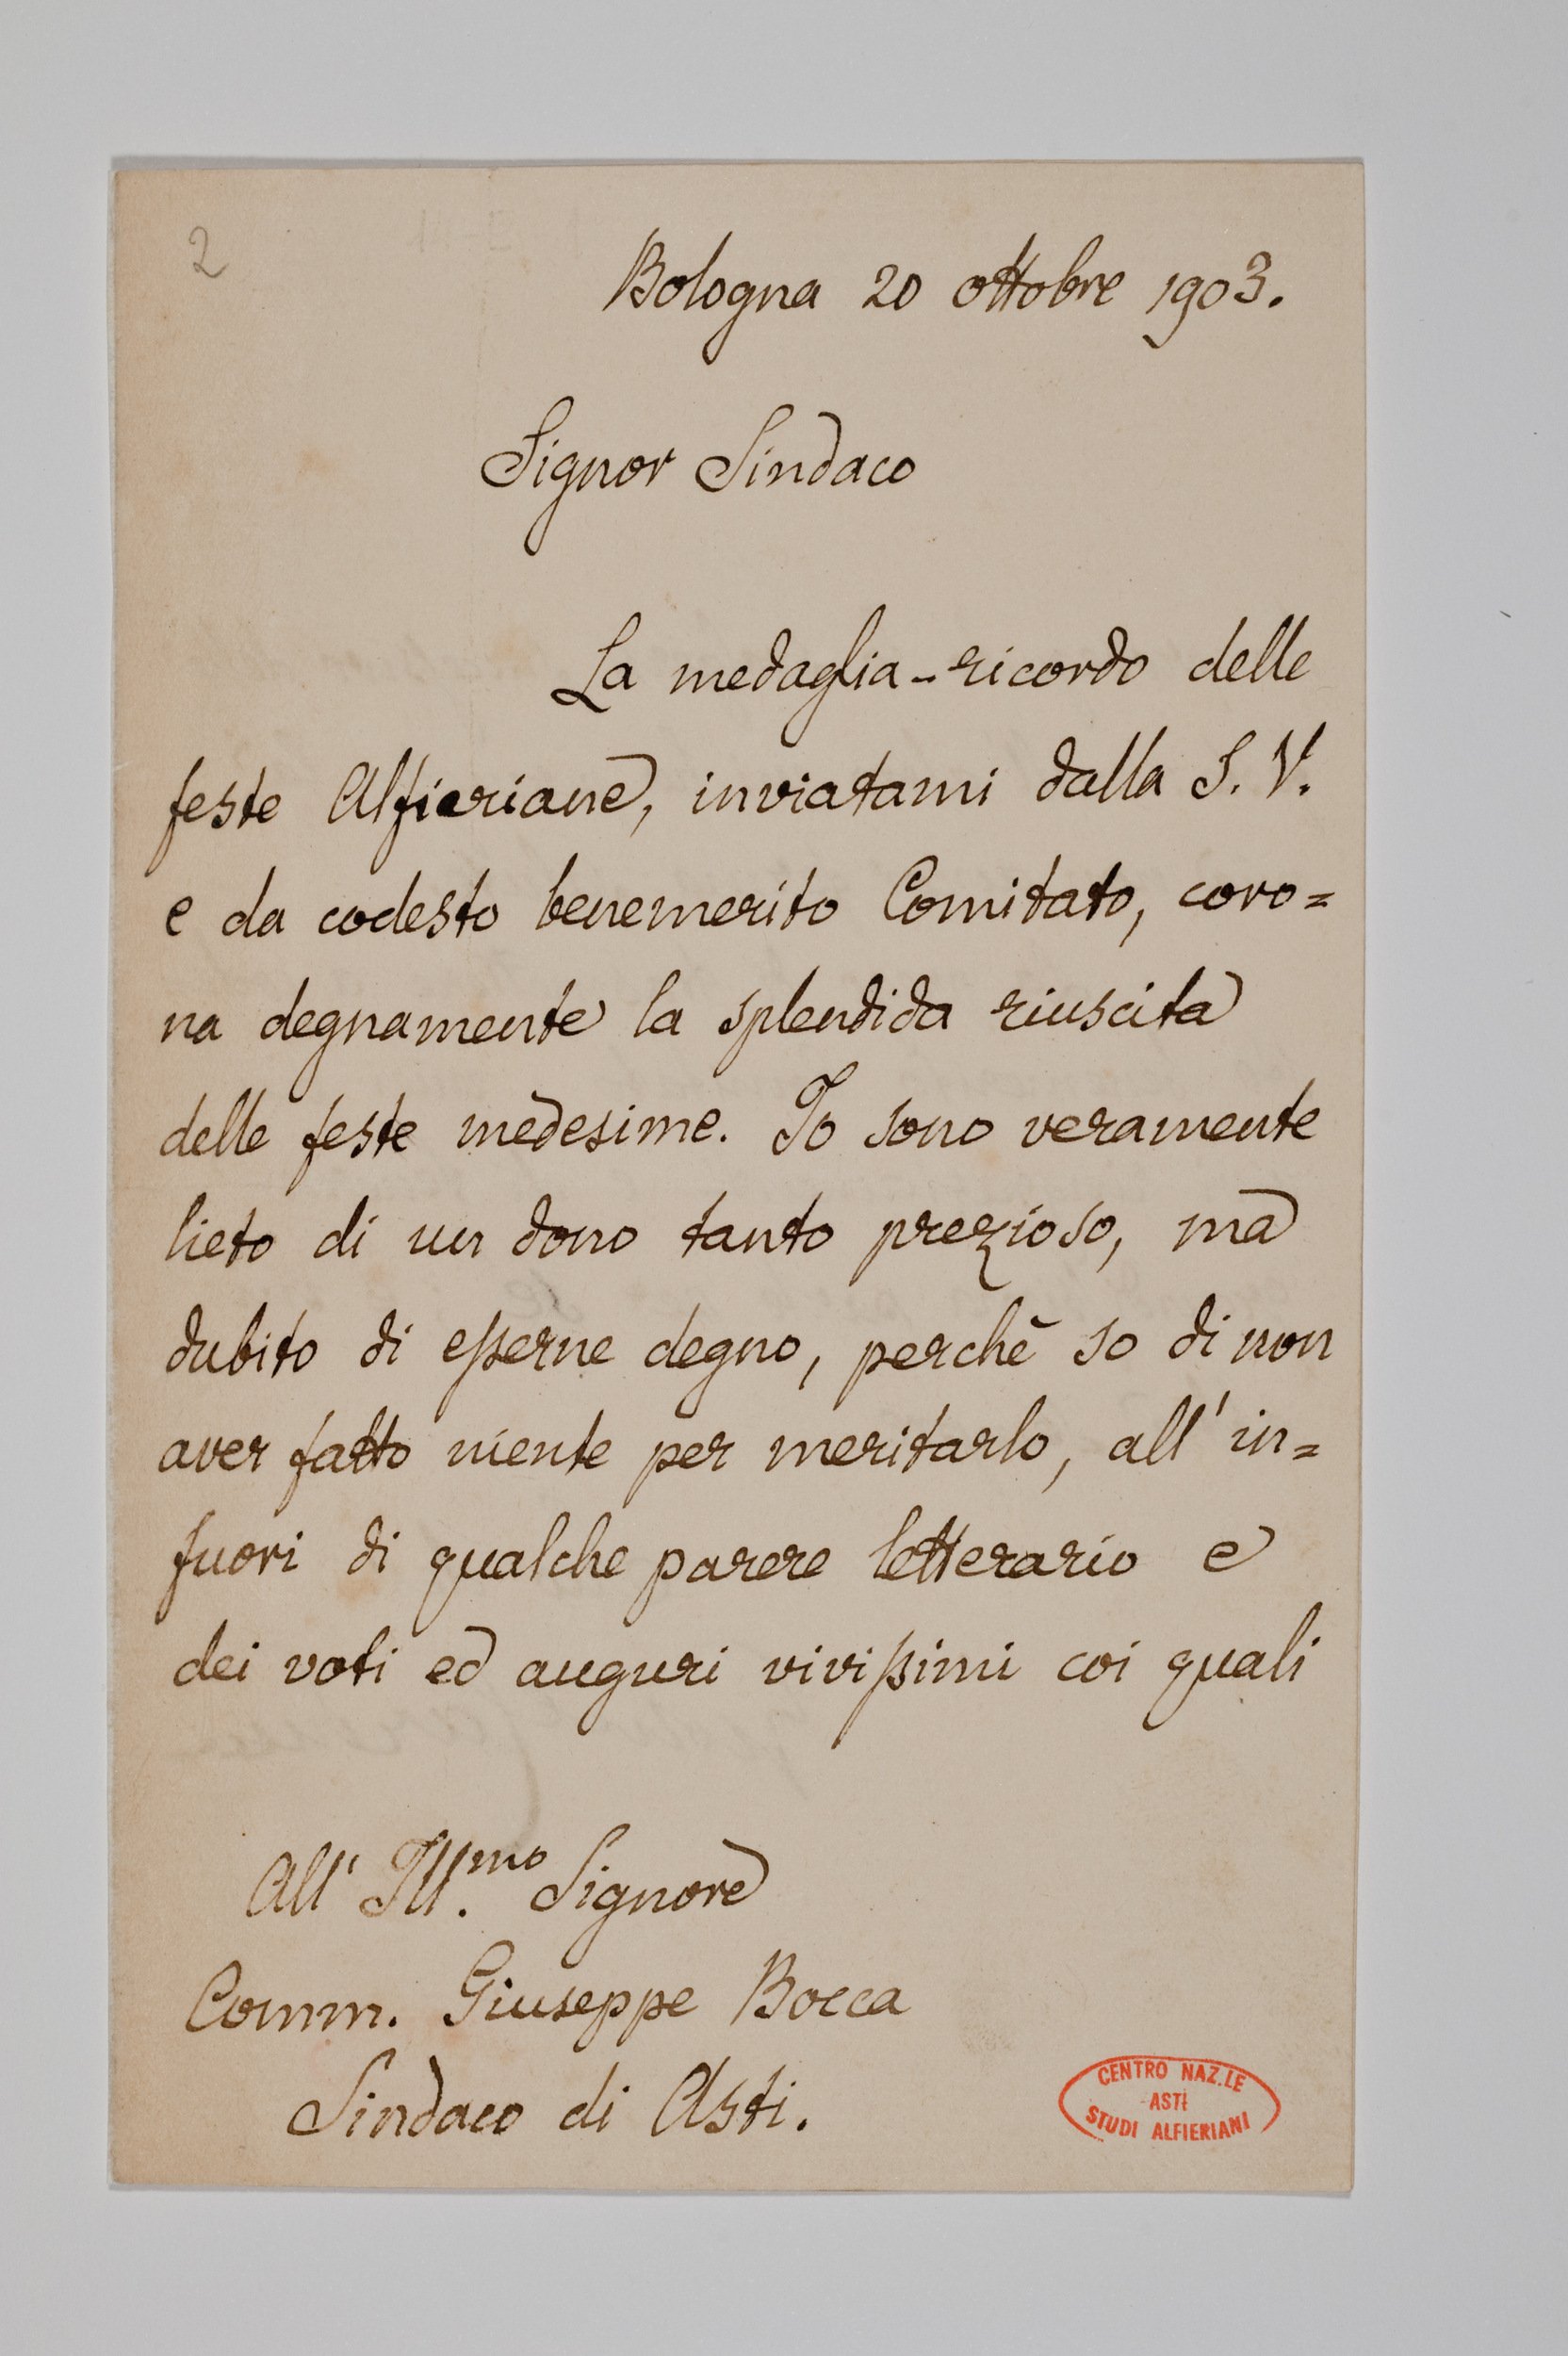 2
Bologna 20 ottobre 1903.
Signor Sindaco
La medaglia-ricordo delle
feste Alfieriane, inviatami dalla S. V.
e da codesto benemerito Comitato, coro=
na degnamente la splendida riuscita
delle feste medesime. Io sono veramente
lieto di un dono tanto prezioso, ma
dubito di esserne degno, perchè so di non
aver fatto niente per meritarlo, all' in=
fuori di qualche parere letterario e
dei voti ed auguri vivissimi coi quali
All' Ill.mo Signore
Comm. Giuseppe Bocca
Sindaco di Asti.
CENTRO NAZ.LE
ASTI
STUDI ALFIERIANI